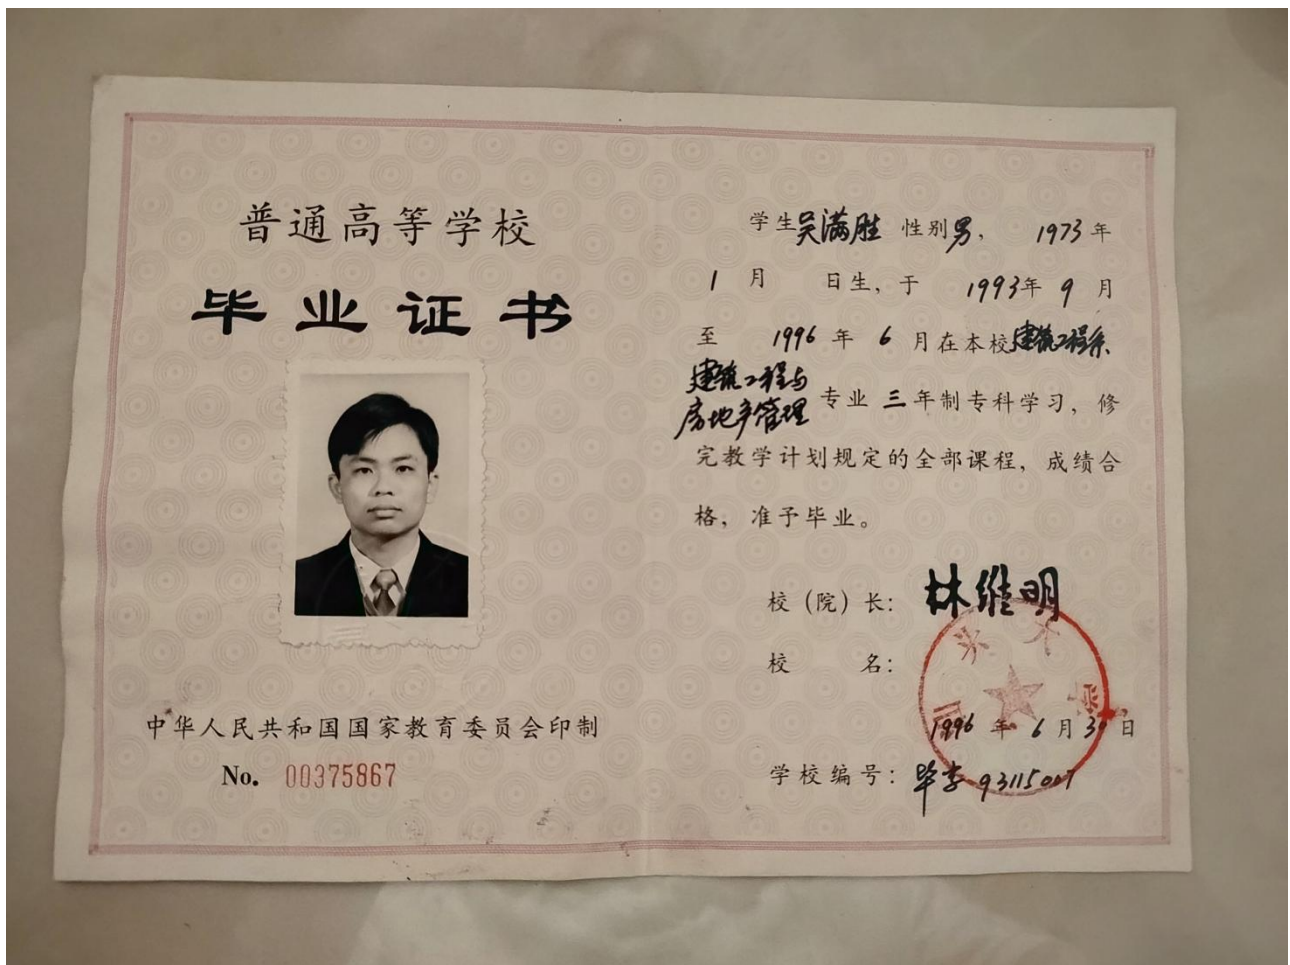 普通高等学校
毕业证书
中华人民共和国国家教育委员会印制
No. 00375867
学生吴满胜 性别男, 1973年
1月 日生, 于 1993年9月
至 1996年6月在本校建筑工程系
建筑工程与
房地产管理
专业 三年制专科学习, 修
完教学计划规定的全部课程, 成绩合
格, 准予毕业。
校(院)长: 林维明
校 名:
1996年6月30日
学校编号: 毕字 93115007